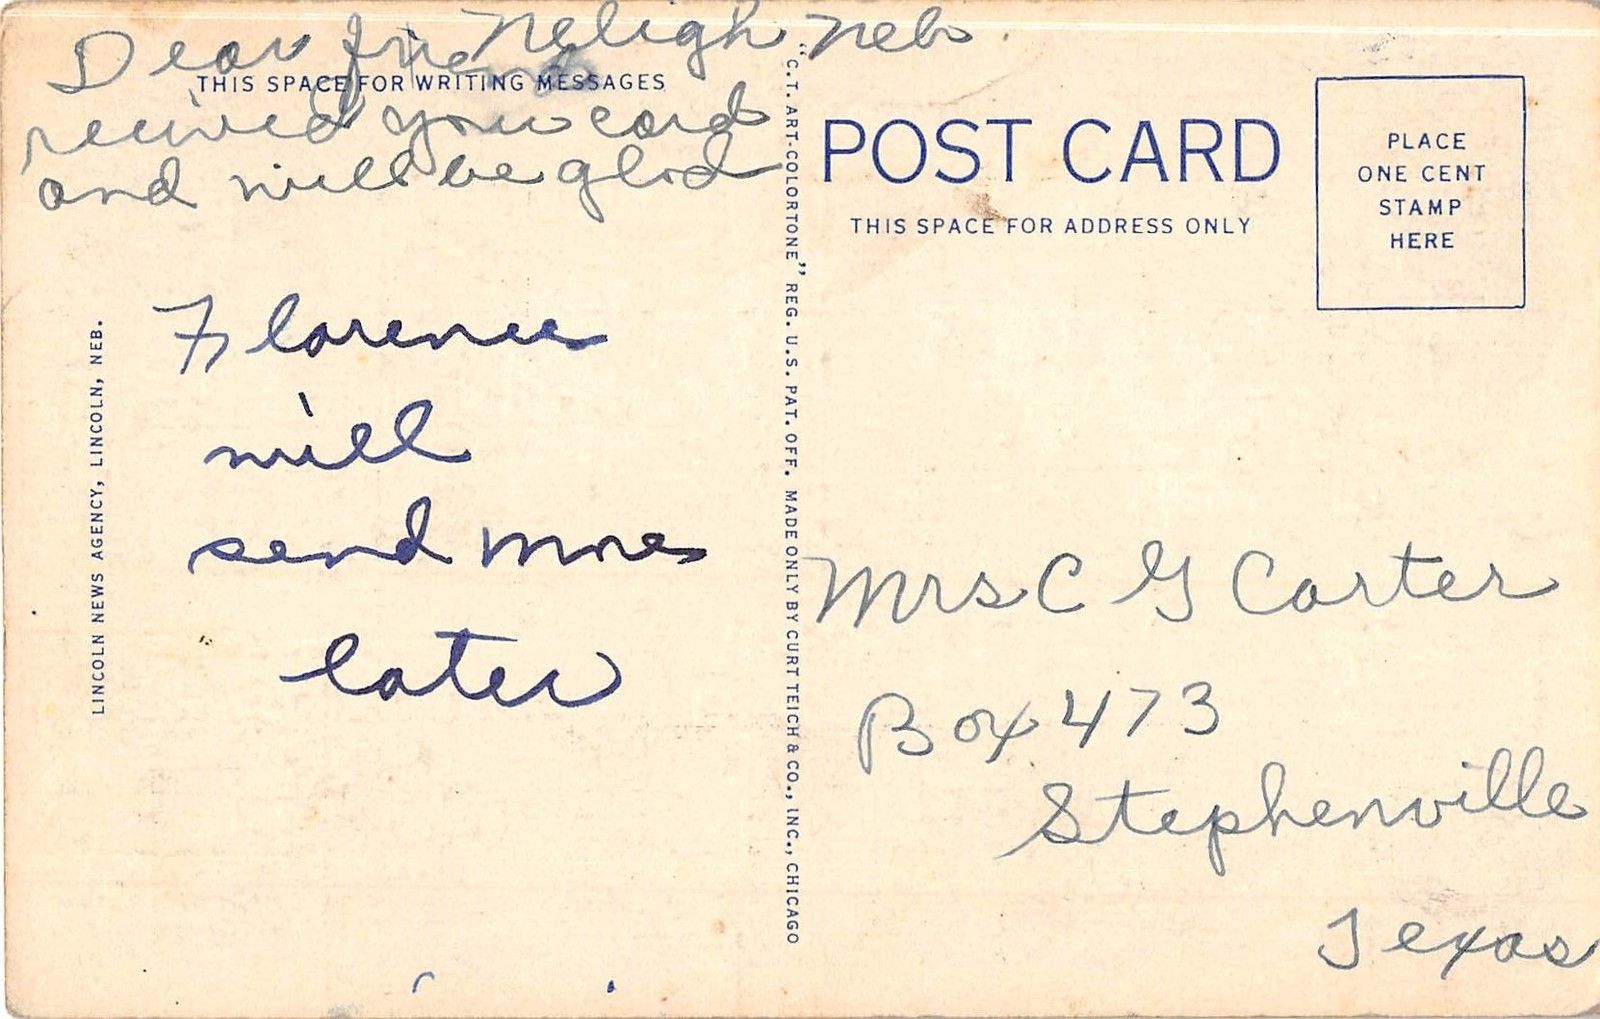 Neligh Nebr
Dear friend
THIS SPACE FOR WRITING MESSAGES
recived your card
and will be glad
Florence
will
send more
later
LINCOLN NEWS AGENCY, LINCOLN, NEB.
"C.T. ART-COLORTONE" REG. U.S. PAT. OFF. MADE ONLY BY CURT TEICH & CO., INC., CHICAGO
POST CARD
THIS SPACE FOR ADDRESS ONLY
PLACE
ONE CENT
STAMP
HERE
Mrs C G Carter
Box 473
Stephenville
Texas